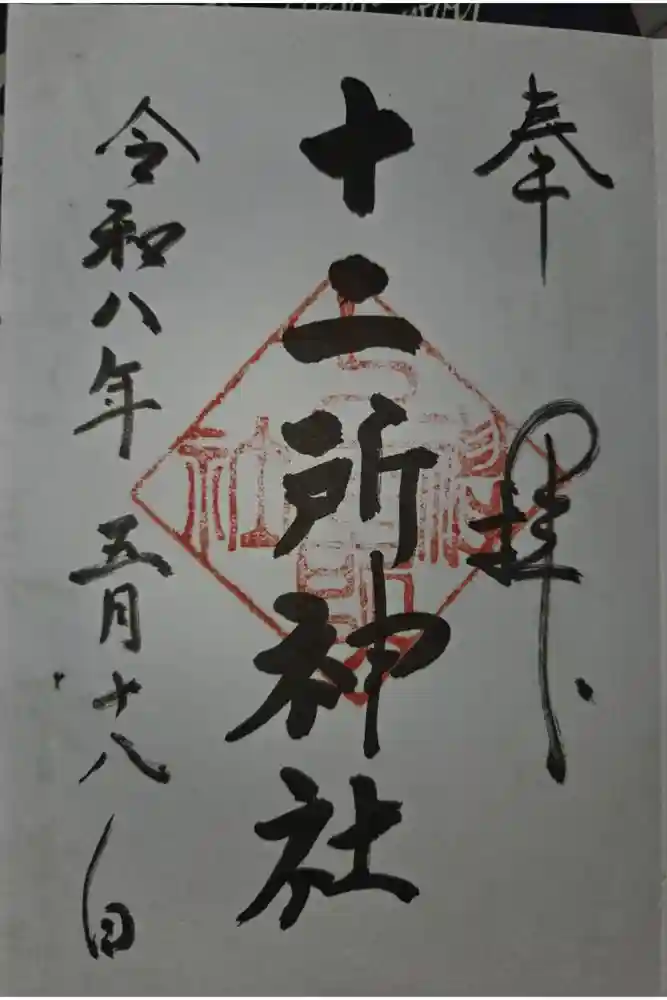 奉拝
十二所神社
令和八年 五月十八日